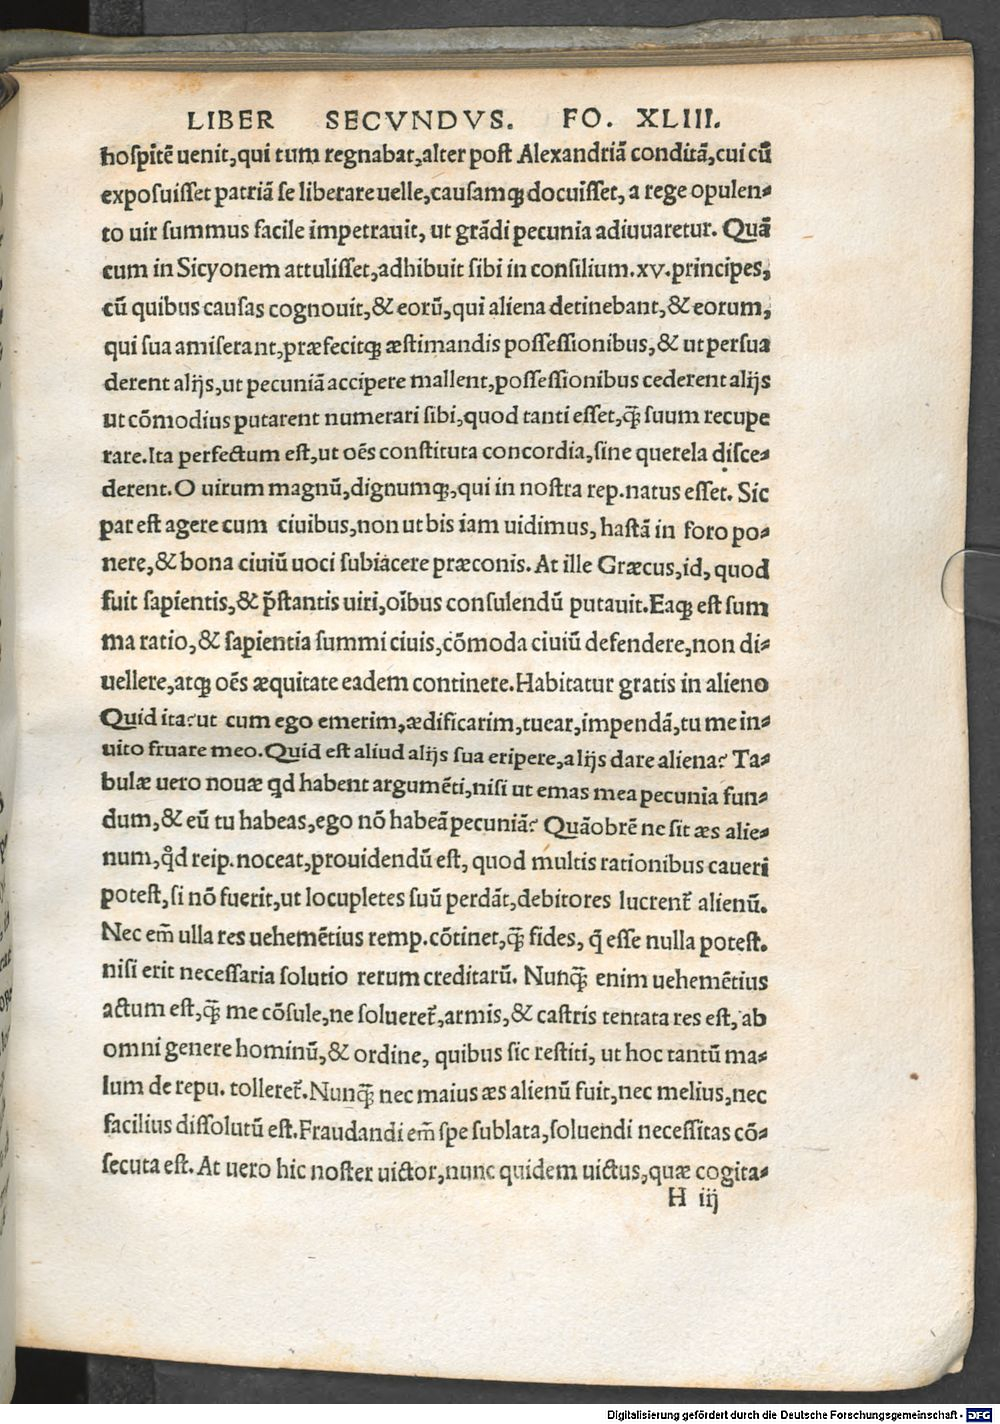 LIBER SECVNDVS. FO. XLIII.
hospitē uenit,qui tum regnabat,alter post Alexandriā conditā,cui cū
exposuisset patriā se liberare uelle,causamq̃ docuisset, a rege opulen⸗
to uir summus facile impetrauit, ut grādi pecunia adiuuaretur. Quā
cum in Sicyonem attulisset,adhibuit sibi in consilium.xv.principes,
cū quibus causas cognouit,& eorū,qui aliena detinebant,& eorum,
qui sua amiserant,præfecitq̃ æstimandis possessionibus,& ut persua
derent alijs,ut pecuniā accipere mallent,possessionibus cederent alijs
ut cōmodius putarent numerari sibi,quod tanti esset,q̃ suum recupe
rare.Ita perfectum est,ut oēs constituta concordia,sine querela disce⸗
derent.O uirum magnū,dignumq̃,qui in nostra rep.natus esset. Sic
par est agere cum ciuibus,non ut bis iam uidimus, hastā in foro po⸗
nere,& bona ciuiū uoci subiacere præconis. At ille Græcus,id, quod
fuit sapientis,& p̄stantis uiri,oībus consulendū putauit.Eaq̃ est sum
ma ratio,& sapientia summi ciuis,cōmoda ciuiū defendere,non di⸗
uellere,atq̃ oēs æquitate eadem continere.Habitatur gratis in alieno
Quid ita?ut cum ego emerim,ædificarim,tuear,impendā,tu me in⸗
uito fruare meo.Quid est aliud alijs sua eripere,alijs dare aliena? Ta⸗
bulæ uero nouæ qd habent argumēti,nisi ut emas mea pecunia fun⸗
dum,& eū tu habeas,ego nō habeā pecuniā? Quāobrē ne sit æs alie⸗
num,qd̓ reip.noceat,prouidendū est, quod multis rationibus caueri
potest,si nō fuerit,ut locupletes suū perdāt,debitores lucrent̃ alienū.
Nec em̄ ulla res uehemētius remp.cōtinet,q̃ fides, q̄ esse nulla potest.
nisi erit necessaria solutio rerum creditarū. Nunq̃ enim uehemētius
actum est,q̃ me cōsule,ne solueret̃,armis,& castris tentata res est, ab
omni genere hominū,& ordine, quibus sic restiti, ut hoc tantū ma⸗
lum de repu. tolleret̃.Nunq̃ nec maius æs alienū fuit,nec melius,nec
facilius dissolutū est.Fraudandi em̄ spe sublata,soluendi necessitas cō⸗
secuta est. At uero hic noster uictor,nunc quidem uictus,quæ cogita⸗
H iij
Digitalisierung gefördert durch die Deutsche Forschungsgemeinschaft - DFG